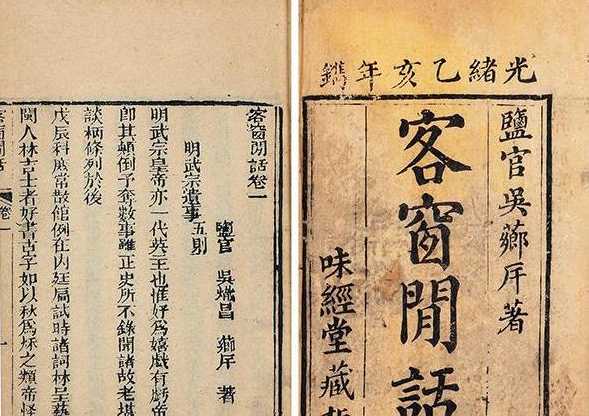 光緒乙亥年鐫
鹽官吳薌厈著
客窗閒話
味經堂藏
客窗閒話卷一
鹽官 吳熾昌 薌厈 著
明武宗遺事 五則
明武宗皇帝亦一代英主也惟好為嬉戲有戲帝
即其顛倒予奪數事雖正史所不錄聞諸故老堪
談柄條列於後
戊辰科庶常散館例在內廷扃試時諸詞林呈藝
閩人林吉士者好書古字如以秋為秌之類帝怪
客窗閒話 卷一